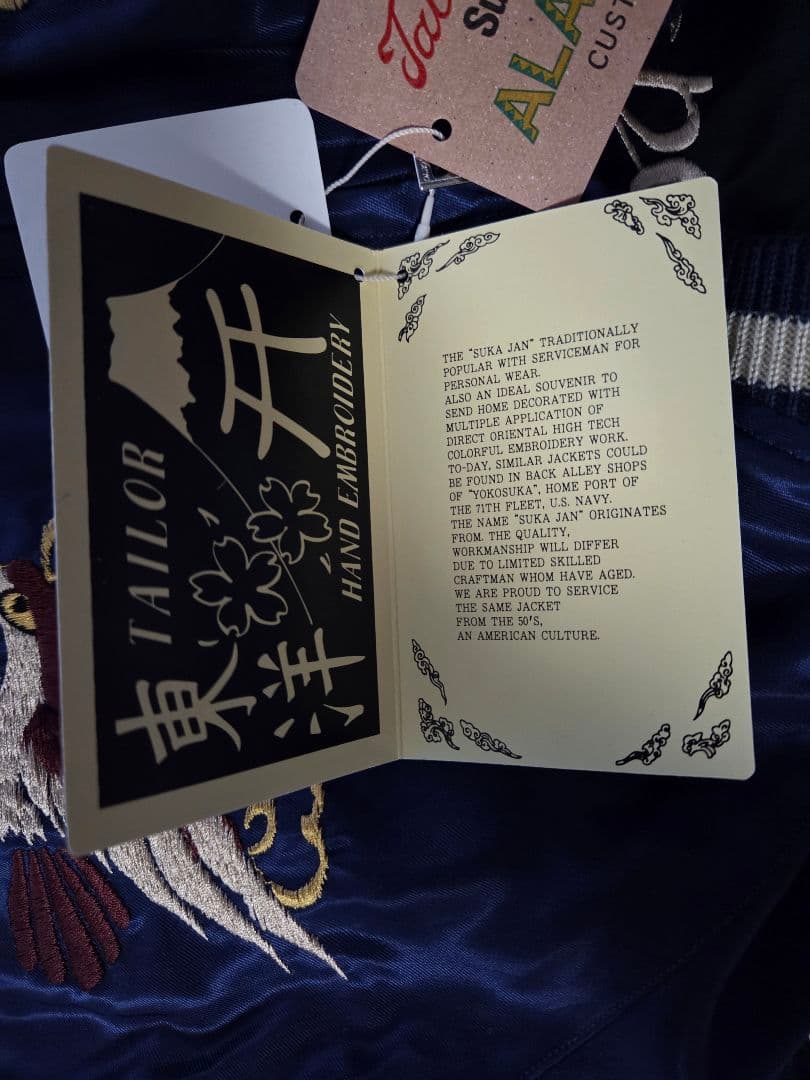 Su
ALA
CUST
TAILOR
東洋
HAND EMBROIDERY
THE "SUKA JAN" TRADITIONALLY
POPULAR WITH SERVICEMAN FOR
PERSONAL WEAR.
ALSO AN IDEAL SOUVENIR TO
SEND HOME DECORATED WITH
MULTIPLE APPLICATION OF
DIRECT ORIENTAL HIGH TECH
COLORFUL EMBROIDERY WORK.
TO-DAY, SIMILAR JACKETS COULD
BE FOUND IN BACK ALLEY SHOPS
OF "YOKOSUKA", HOME PORT OF
THE 71TH FLEET, U.S. NAVY.
THE NAME "SUKA JAN" ORIGINATES
FROM. THE QUALITY,
WORKMANSHIP WILL DIFFER
DUE TO LIMITED SKILLED
CRAFTMAN WHOM HAVE AGED.
WE ARE PROUD TO SERVICE
THE SAME JACKET
FROM THE 50'S,
AN AMERICAN CULTURE.